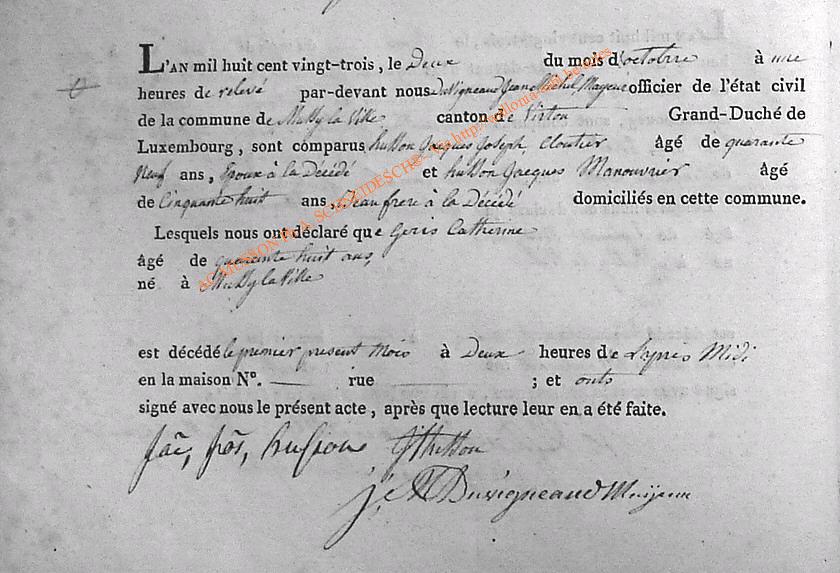 L'AN mil huit cent vingt-trois, le Deux du mois d'octobre à une
heures de relevé par-devant nous Duvigneaud Jean Michel Mayeur officier de l'état civil
de la commune de Mussy la Ville canton de Virton Grand-Duché de
Luxembourg, sont comparus husson Jacques Joseph, Cloutier âgé de quarante
Neuf ans, Epoux à la Décédé et husson Jacques Manouvrier âgé
de Cinquante huit ans, Beau frere à la Décédé domiciliés en cette commune.
Lesquels nous ont déclaré que Goris Catherine
âgé de quarante huit ans,
né à Mussy la Ville
est décédé le premier present Mois à Deux heures de L'apres Midi
en la maison N°. rue ; et onts
signé avec nous le présent acte, après que lecture leur en a été faite.
jac, jos, husson J husson
J, M Duvigneaud Mayeur